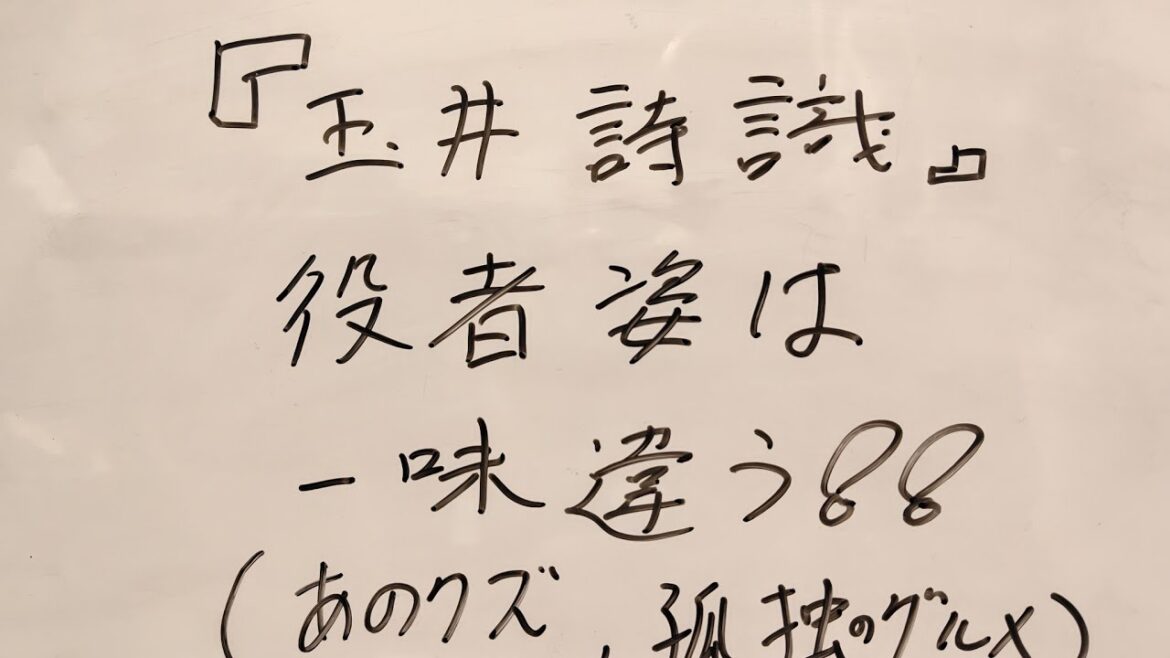 『玉井詩識』
役者姿は
一味違う!!
(あのクズ、孤独のグルメ)